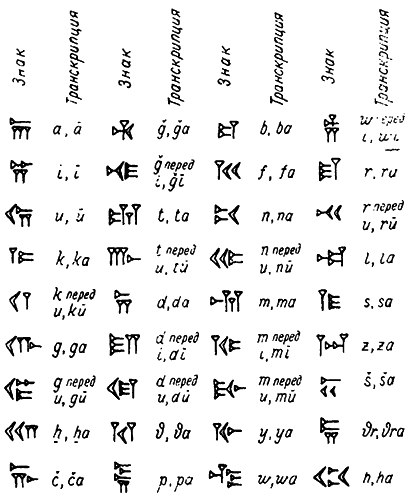 Знак Транскрипция Знак Транскрипция Знак Транскрипция Знак Транскрипция
𐎠 a, ā 𐎩 ǧ, ǧa 𐎲 b, ba 𐎻 w перед
i, wi
𐎡 i, ī 𐎪 ǧ перед 𐎳 f, fa 𐎼 r, ra
i, ǧi
𐎢 u, ū 𐎫 t, ta 𐎴 n, na 𐎽 r перед
u, rŭ
𐎣 k, ka 𐎬 t перед 𐎵 n перед 𐎾 l, la
u, tŭ u, nŭ
𐎤 k перед 𐎭 d, da 𐎶 m, ma 𐎿 s, sa
u, kŭ
𐎥 g, ga 𐎮 d перед 𐎷 m перед 𐏀 z, za
i, di i, mi
𐎦 g перед 𐎯 d перед 𐎸 m перед 𐏁 š, ša
u, gŭ u, dŭ u, mŭ
𐎧 ḫ, ḫa 𐎰 ϑ, ϑa 𐎹 y, ya 𐏂 ϑr, ϑra
𐎨 č, ča 𐎱 p, pa 𐎺 w, wa 𐏃 h, ha